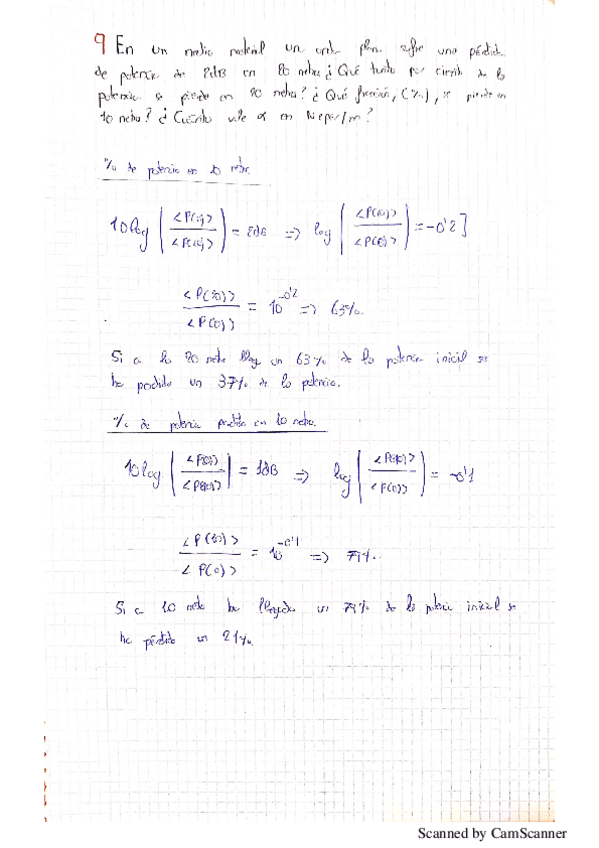 9 En un medio material un onda plana sufre una pérdida
de potencia de 2dB en 20 metros ¿Qué tanto por ciento de la
potencia se pierde en 20 metros? ¿Qué fracción, (%), se pierde en
10 metros? ¿Cuánto vale α en Neper/m?
% de potencia en 20 metros.
10log (<P(0)>/<P(20)>) = 2dB => log (<P(20)>/<P(0)>) = -0'2]
<P(20)>/<P(0)> = 10^-0'2 => 63%.
Si a los 20 metros llega un 63% de la potencia inicial se
ha perdido un 37% de la potencia.
% de potencia perdida en 10 metros.
10log (<P(0)>/<P(10)>) = 1dB => log (<P(10)>/<P(0)>) = -0'1
<P(10)>/<P(0)> = 10^-0'1 => 79%.
Si a 10 metros ha llegado un 79% de la potencia inicial se
ha pérdido un 21%.
Scanned by CamScanner